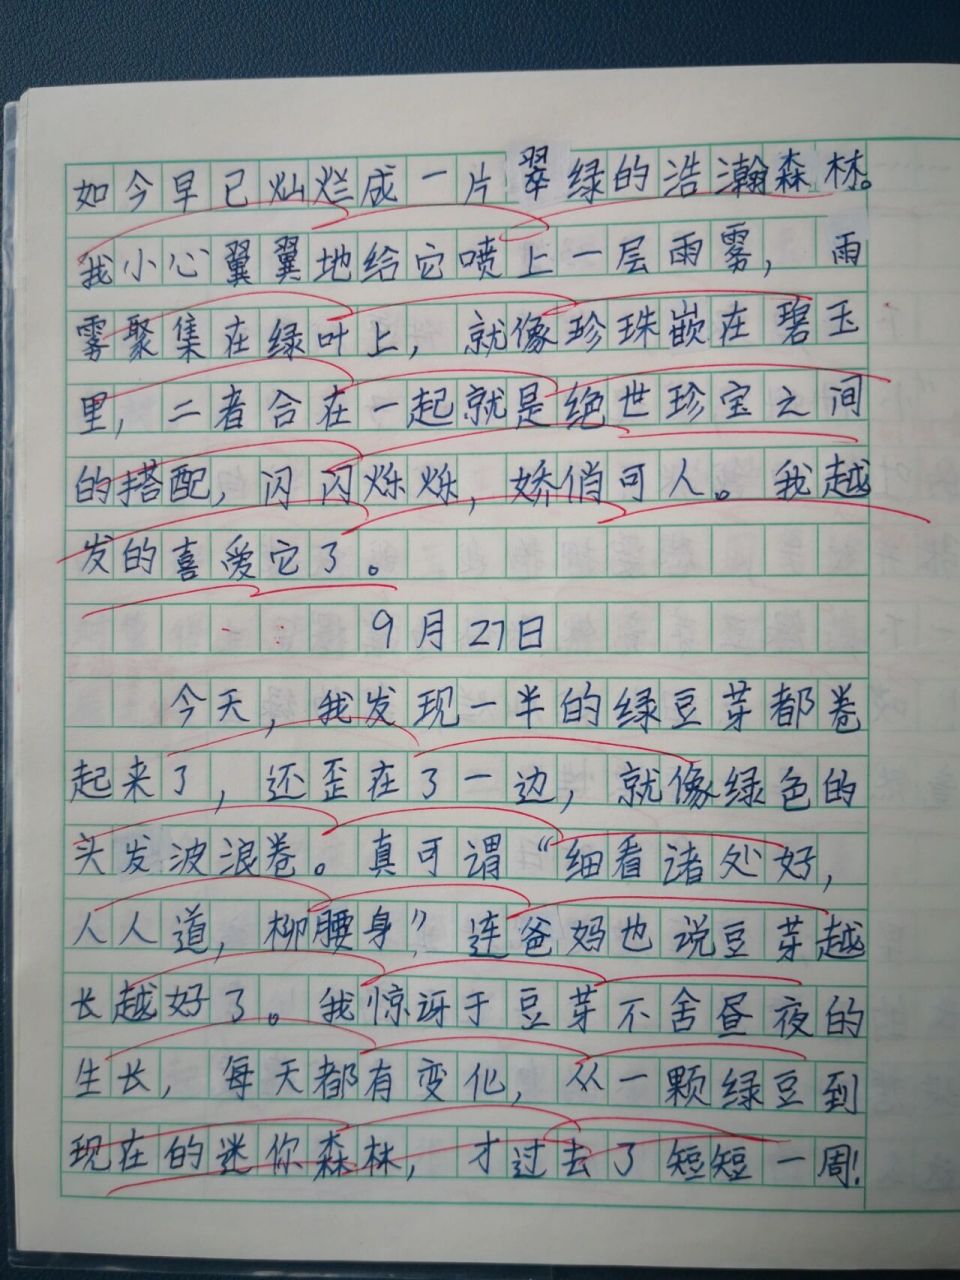 如今早已灿烂成一片翠绿的浩瀚森林。
我小心翼翼地给它喷上一层雨雾，雨
雾聚集在绿叶上，就像珍珠嵌在碧玉
里，二者合在一起就是绝世珍宝之间
的搭配，闪闪烁烁，娇俏可人。我越
发的喜爱它了。
9月27日
今天，我发现一半的绿豆芽都卷
起来了，还歪在了一边，就像绿色的
头发波浪卷。真可谓“细看诸处好，
人人道，柳腰身”，连爸妈也说豆芽越
长越好了。我惊讶于豆芽不舍昼夜的
生长，每天都有变化，从一颗绿豆到
现在的迷你森林，才过去了短短一周！